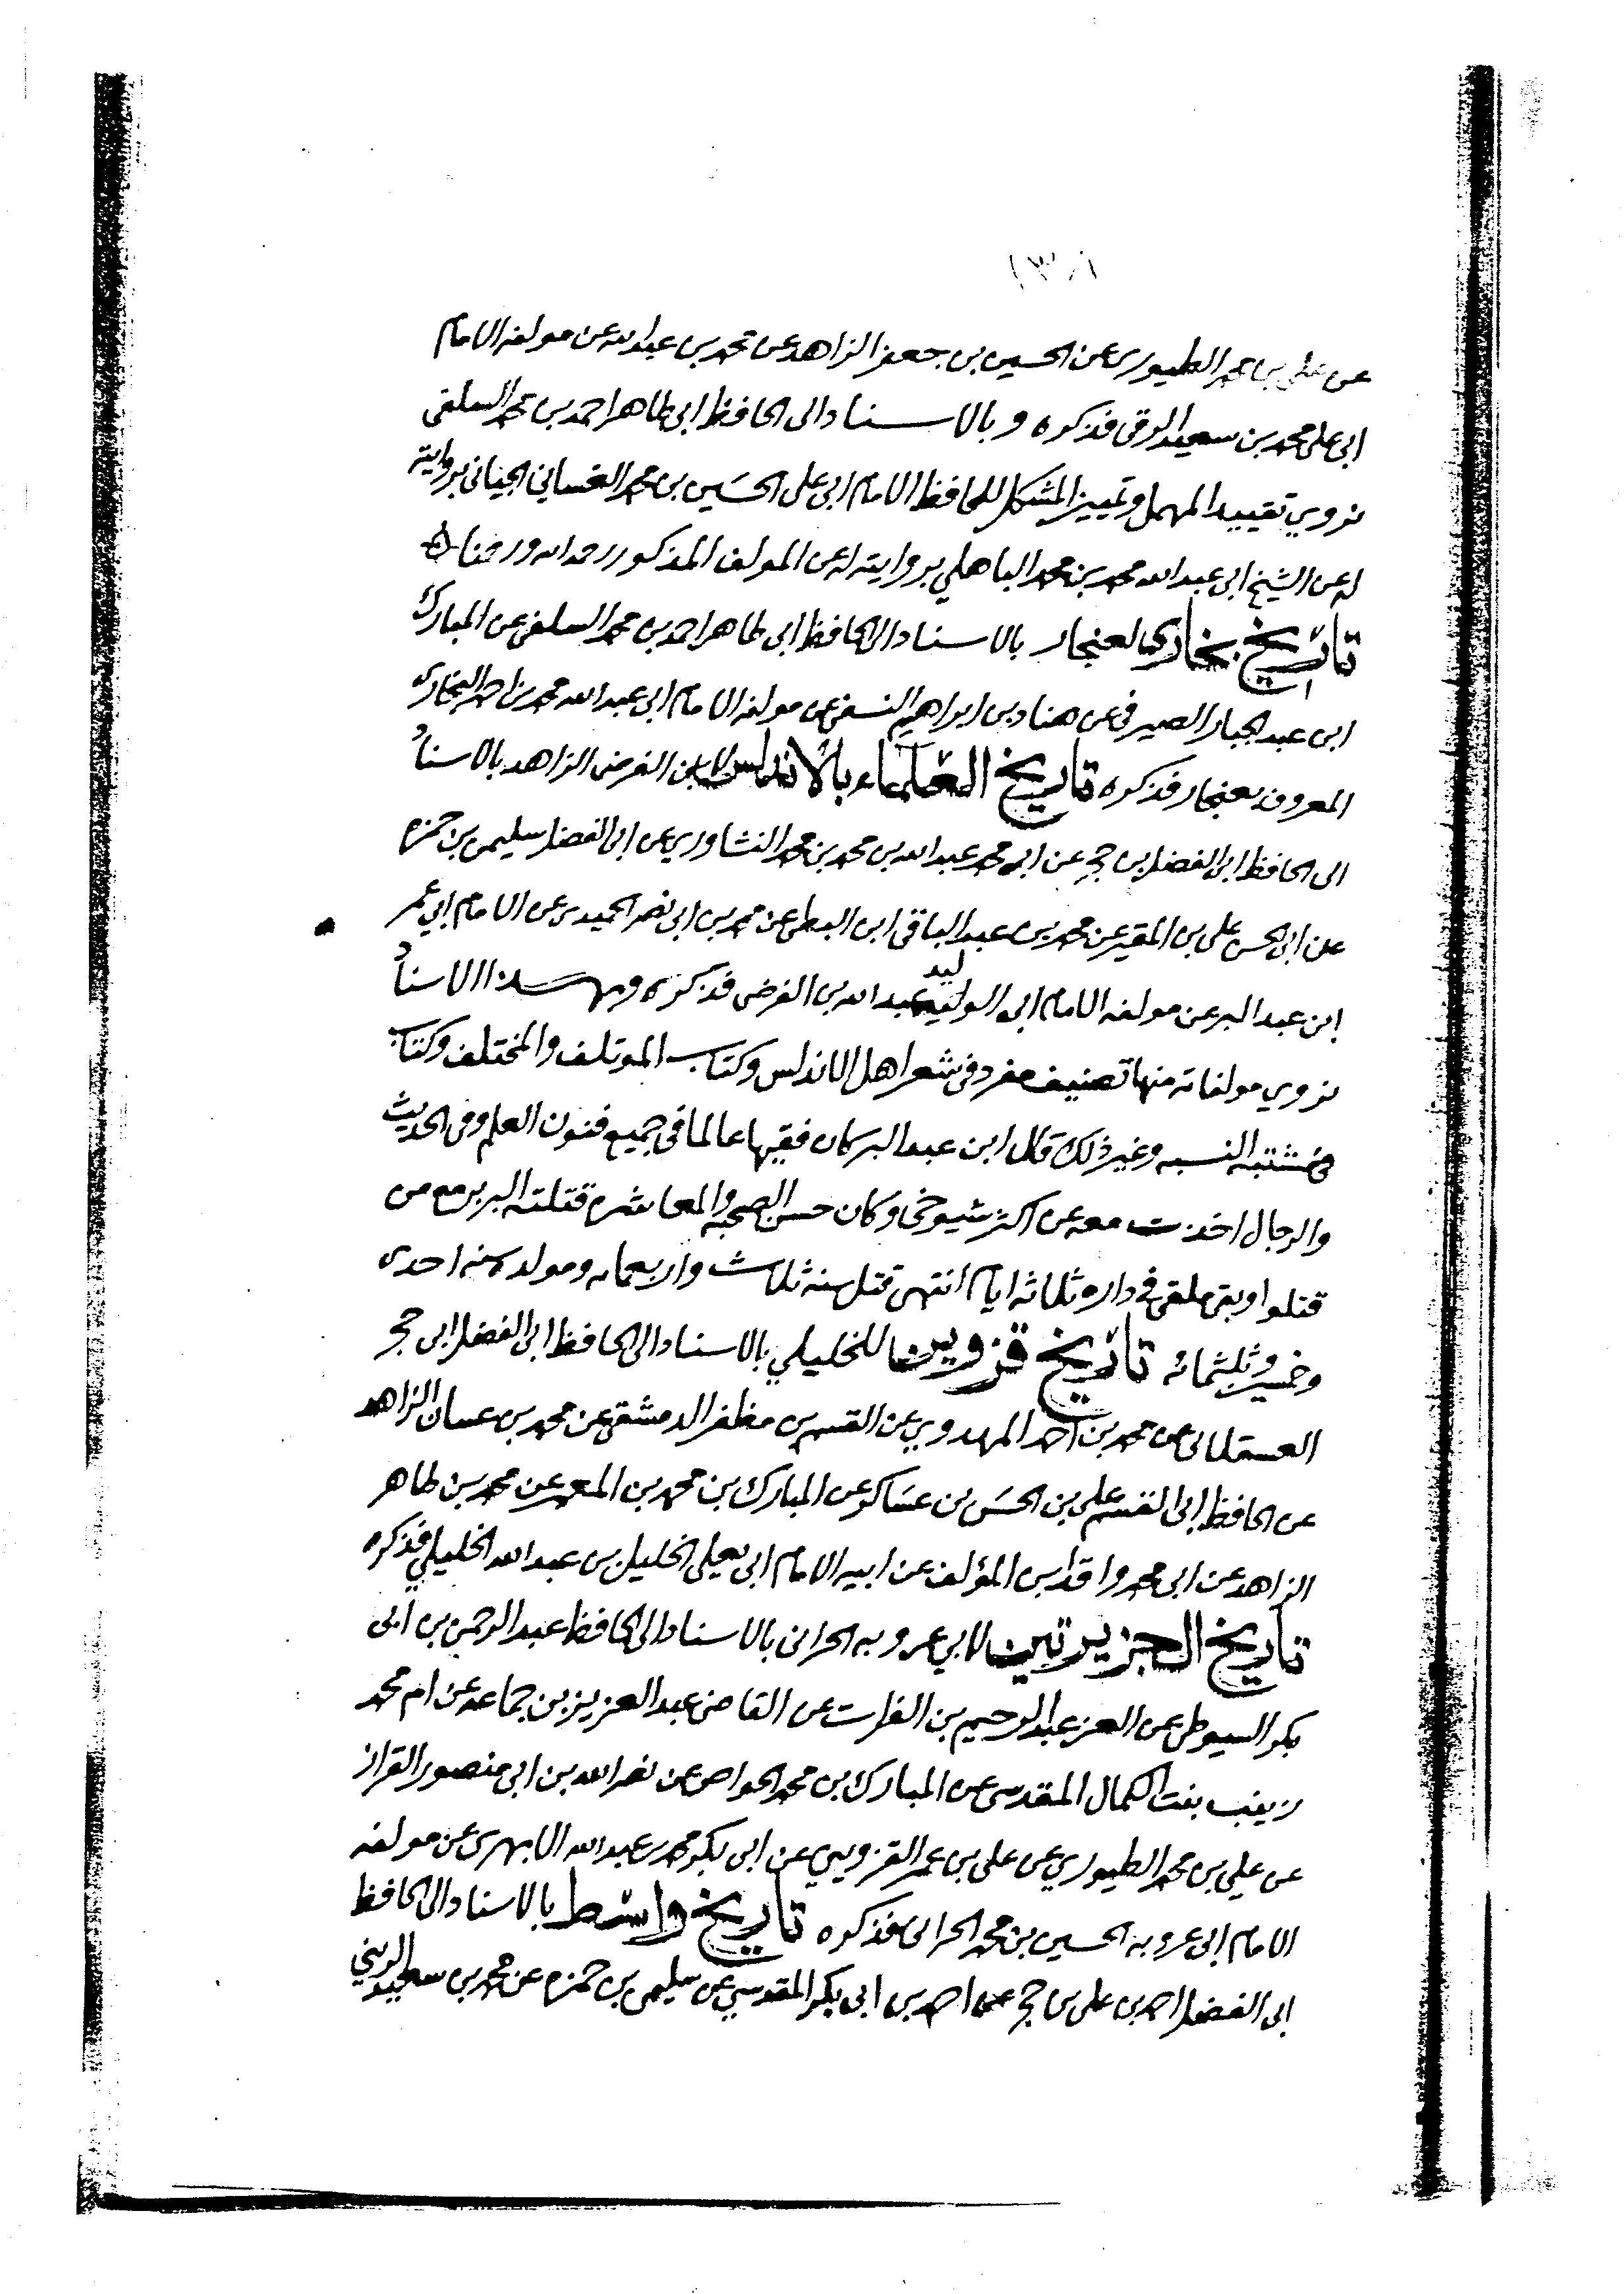 عن علي بن محمد الطيوري عن الحسين بن جعفر الزاهد عن محمد بن عبد الله عن مولفه الامام
ابي علي محمد بن سعيد الرقي فذكره وبالاسناد الى الحافظ ابي طاهر احمد بن محمد السلفي
نروي تقييد المهمل وتمييز المشكل للحافظ الامام ابي علي الحسين بن محمد الغساني الجياني بروايته
له عن الشيخ ابي عبد الله محمد بن محمد الباهلي بروايته له عن المولف المذكور رحمه الله ورحمنا
تاريخ بخارى لغنجار بالاسناد الى الحافظ ابي طاهر احمد بن محمد السلفي عن المبارك
ابن عبد الجبار الصيرفي عن هناد بن ابراهيم النسفي عن مولفه الامام ابي عبد الله محمد بن احمد البخاري
المعروف بغنجار فذكره تاريخ العلماء بالاندلس لابن الفرضي الزاهد بالاسناد
الى الحافظ ابي الفضل بن حجر عن ابي محمد عبد الله بن محمد بن محمد النشاوري عن ابي الفضل سليمن بن حمزه
عن ابي الحسن علي بن المقير عن محمد بن عبد الباقي ابن البطي عن محمد بن ابي نصر الحميدي عن الامام ابي عمر
ابن عبد البر عن مولفه الامام ابي الوليد عبد الله بن الفرضي فذكره وبهذا الاسناد
نروي مولفاته منها تصنيف مفرد في شعر اهل الاندلس وكتاب الموتلف والمختلف وكتاب
في مشتبه النسبه وغير ذلك قال ابن عبد البر كان فقيها عالما في جميع فنون العلم وفي الحديث
والرجال اخذت معه عن اكثر شيوخي وكان حسن الصحبه والمعاشره قتلته البربر مع من
قتلوا وبقي ملقى في داره ثلاثه ايام انتهى قتل سنه ثلاث واربعمايه ومولده سنه احدى
وخمسين وثلثمائه تاريخ قزوين للخليلي بالاسناد الى الحافظ ابي الفضل ابن حجر
العسقلاني عن محمد بن احمد المهدوي عن القسم بن مظفر الدمشقي عن محمد بن غسان الزاهد
عن الحافظ ابي القسم علي بن الحسن بن عساكر عن المبارك بن محمد بن المعمر عن محمد بن طاهر
الزاهد عن ابي محمد واقد ابن المؤلف عن ابيه الامام ابي يعلى الخليل بن عبد الله الخليلي فذكره
تاريخ الجزيرتين لابي عروبه الحراني بالاسناد الى الحافظ عبد الرحمن بن ابي
بكر السيوطي عن العز عبد الرحيم بن الفرات عن القاضي عبد العزيز بن جماعه عن ام محمد
زينب بنت الكمال المقدسي عن المبارك بن محمد الخواص عن نصر الله بن ابي منصور القزاز
عن علي بن محمد الطيوري عن علي بن عمر القزويني عن ابي بكر محمد بن عبد الله الابهري عن مولفه
الامام ابي عروبه الحسين بن محمد الحراني فذكره تاريخ واسط بالاسناد الى الحافظ
ابي الفضل احمد بن علي بن حجر عن احمد بن ابي بكر المقدسي عن سليمن بن حمزه عن محمد بن سعيد